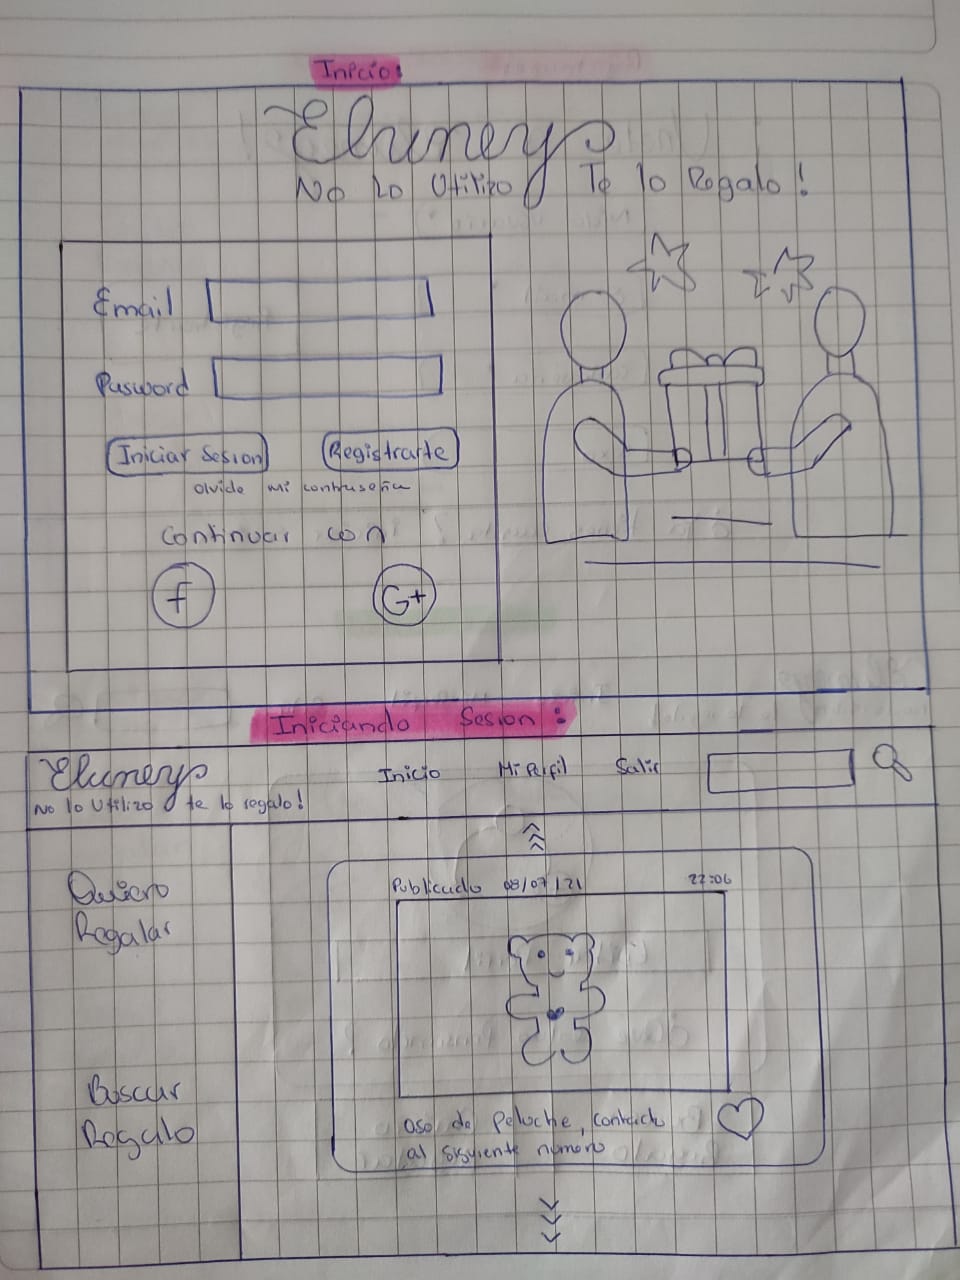 Inicio:
Eluneys
No Lo Utilizo Te lo Regalo!
Email
Pasword
Iniciar Sesion Registrarte
olvide mi contraseña
Continuar con
f G+
Iniciando Sesion:
Eluneys
No lo Utilizo te lo regalo!
Inicio Mi Perfil Salir
Quiero
Regalar
Buscar
Regalo
Publicado 08/07/21 22:06
Oso de Peluche, contacto
al siguiente numero